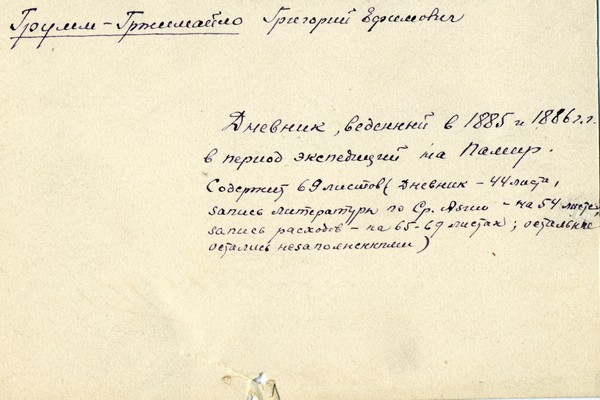 Грумм-Гржимайло Григорий Ефимович
Дневник, веденный в 1885 и 1886 г.г.
в период экспедиций на Памир.
Содержит 69 листов (Дневник – 44 листа,
запись литературы по Ср. Азии – на 54 листе,
запись расходов – на 65-69 листах; остальные
остались незаполненными)